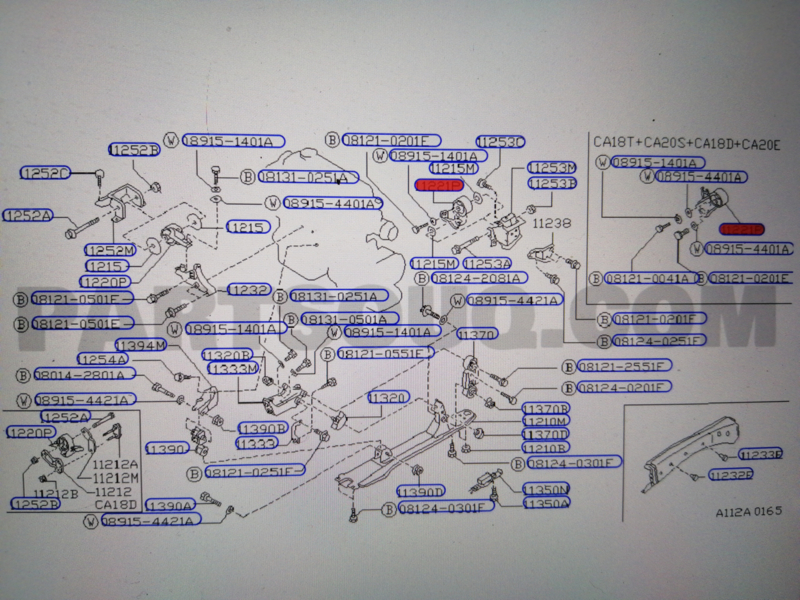 CA18T+CA20S+CA18D+CA20E
W 08915-1401A
B 08121-0201E
11253C
11252B
W 08915-1401A
11215M
W 08915-1401A
11252C
B 08131-0251A
11221P
11253M
W 08915-4401A
11253B
11252A
W 08915-4401A
11215
11238
11252M
W 08915-4401A
11215
11215M
11253A
11220P
B 08124-2081A
B 08121-0041A
B 08121-0201E
B 08121-0501E
11232
B 08131-0251A
W 08915-4421A
PARTSOUQ.COM
B 08121-0501E
W 08915-1401A
B 08131-0501A
W 08915-1401A
11370
B 08121-0201F
B 08124-0251F
11394M
11320B
B 08121-0551E
11254A
11333M
B 08121-2551E
B 08014-2801A
B 08124-0201E
W 08915-4421A
11320
11370B
11252A
11390B
11210M
11220P
11390
11333
11370D
11210B
11212A
B 08121-0251E
B 08124-0301F
11233E
11212M
11232E
11212B
11212
11390D
11350N
11252B
CA18D
11390A
B 08124-0301F
11350A
W 08915-4421A
A112A 0165